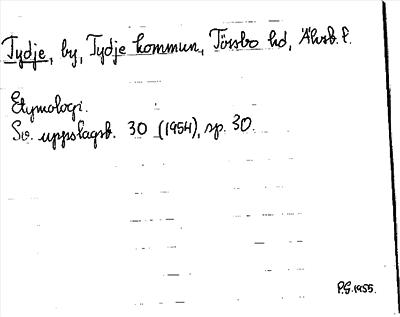 Tydje, by, Tydje kommun, Tössbo hd, Älvsb. l.
Etymologi.
Sv. uppslagsb. 30 (1954), sp. 30.
P.G. 1955.